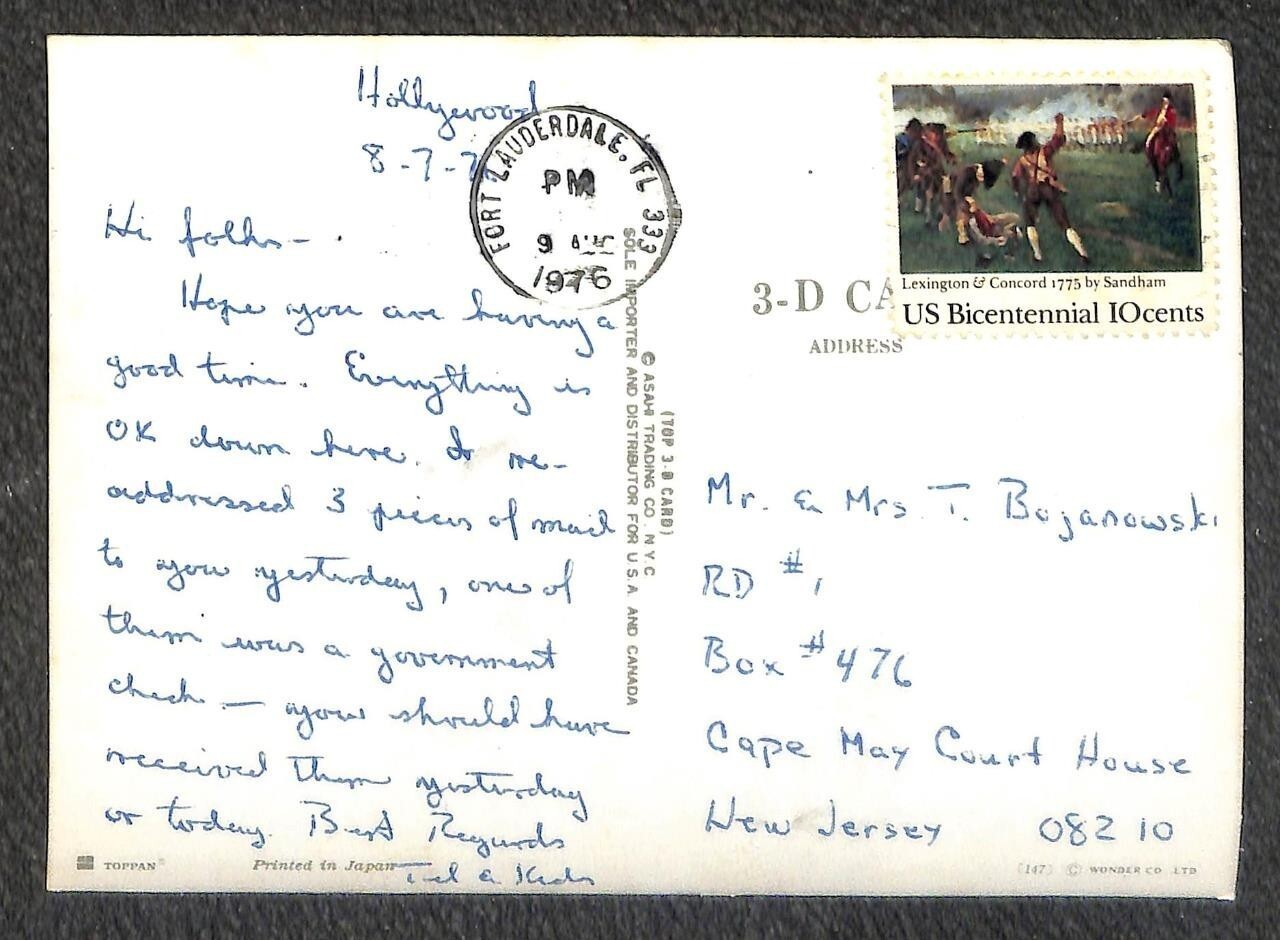 Hollywood
8-7-7
Hi folks-
Hope you are having a
good time. Everything is
OK down here. I re-
addressed 3 pieces of mail
to you yesterday, one of
them was a government
check — you should have
received them yesterday
or today. Best Regards
& Kids
FORT LAUDERDALE, FL 333
PM
9
1976
SOLE IMPORTER AND DISTRIBUTOR FOR U.S.A. AND CANADA
© ASAHI TRADING CO. N.Y.C
(TOP 3-D CARD)
3-D CA
ADDRESS
Lexington & Concord 1775 by Sandham
US Bicentennial 10cents
Mr. & Mrs. T. Bojanowski
RD #1
Box #476
Cape May Court House
New Jersey 08210
TOPPAN
Printed in Japan
(147) © WONDER CO. LTD